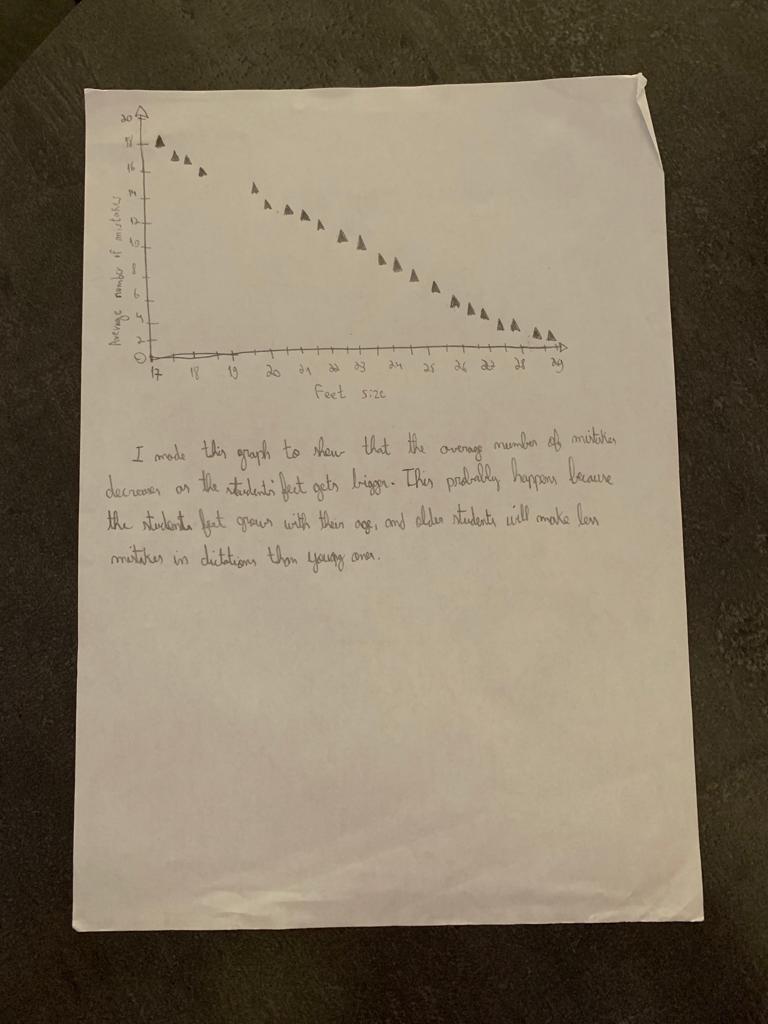 20
18
16
Average number of mistakes
2
0
17 18 19 20 21 22 23 24 25 26 27 28 29
Feet size
I made this graph to show that the average number of mistakes
decreases as the students' feet gets bigger. This probably happens because
the students feet grows with their age, and older students will make less
mistakes in dictations than young ones.